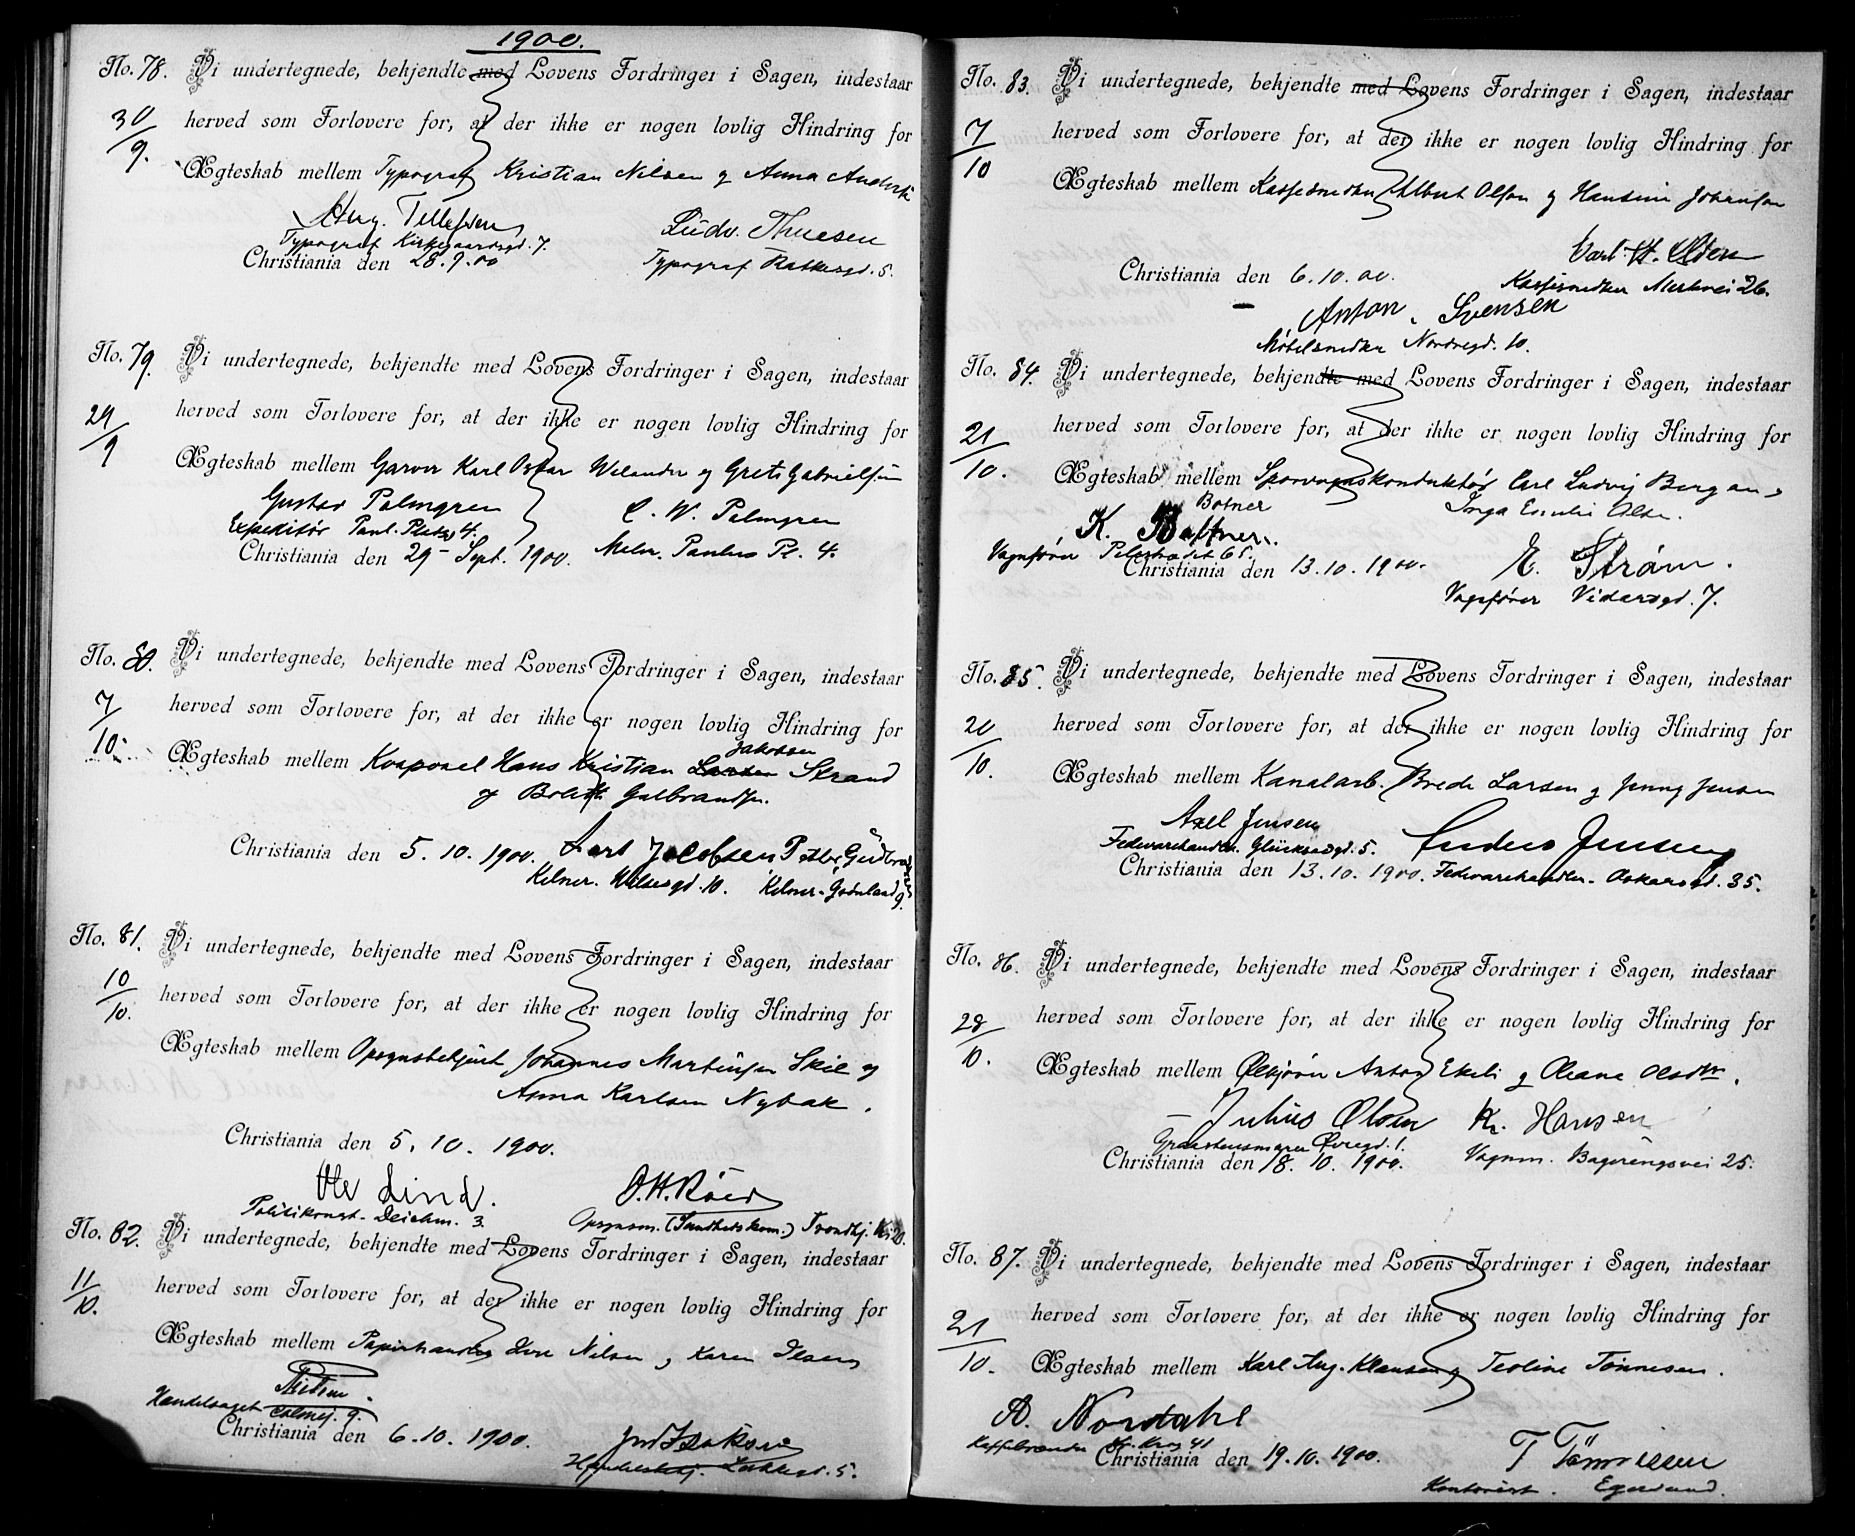 1900.
No. 78. Vi undertegnede, bekjendte med Lovens Fordringer i Sagen, indestaar
30/9. herved som Forlovere for, at der ikke er nogen lovlig Hindring for
Ægteskab mellem Typograf Kristian Nilsen og Anna
Aug. Tellefsen Ludv. Thuesen
Typograf Kirkegaardsgd. 7.
Christiania den 28.9.00 Typograf Rathkesgd. 5.
No. 79. Vi undertegnede, bekjendte med Lovens Fordringer i Sagen, indestaar
29/9 herved som Forlovere for, at der ikke er nogen lovlig Hindring for
Ægteskab mellem Garver Karl Oskar Welander og Grete Gabrielsen
Gustav Palmgren C. W. Palmgren
Expeditør Paul. Plads 4.
Christiania den 29 Sept. 1900. Paulus Pl. 4.
No. 80. Vi undertegnede, bekjendte med Lovens Fordringer i Sagen, indestaar
7/10. herved som Forlovere for, at der ikke er nogen lovlig Hindring for
Jakobsen
Ægteskab mellem Korporal Hans Kristian Larsen Strand
og Bolette Gulbrandsen.
Christiania den 5.10.1900. Jacobsen
Kelner. 10. Kelner. Grønland 9.
No. 81. Vi undertegnede, bekjendte med Lovens Fordringer i Sagen, indestaar
10/10. herved som Forlovere for, at der ikke er nogen lovlig Hindring for
Ægteskab mellem Opsynsbetjent Johannes Martinsen Skie og
Anna Karlsen Nybak.
Christiania den 5.10.1900.
Ole Lind. O. H. Röed
Politikonst. Deichm. 3. Opsynsm. (Sundhetskom.) Trondhj. 20.
No. 82. Vi undertegnede, bekjendte med Lovens Fordringer i Sagen, indestaar
11/10. herved som Forlovere for, at der ikke er nogen lovlig Hindring for
Ægteskab mellem Papirhandler Nilsen og Karen Olsen
9.
Christiania den 6.10.1900. Isaksen
5.
No. 83. Vi undertegnede, bekjendte med Lovens Fordringer i Sagen, indestaar
7/10 herved som Forlovere for, at der ikke er nogen lovlig Hindring for
Ægteskab mellem Kassesnedker Albert Olsen og Hansine Johansen
Carl H. Olsen
Christiania den 6.10.00. Kassesnedker 26.
Anton Svensen
Møbelsnedker Nordregd. 10.
No. 84. Vi undertegnede, bekjendte med Lovens Fordringer i Sagen, indestaar
21/10. herved som Forlovere for, at der ikke er nogen lovlig Hindring for
Ægteskab mellem Sporvognskonduktør Carl Ludvig Bergan og
Botner Inga Emilie Olsen.
K. Battner.
Vognfører 65.
Christiania den 13.10.1900. E. Strøm.
Vognfører Vidarsgd. 7.
No. 85. Vi undertegnede, bekjendte med Lovens Fordringer i Sagen, indestaar
20/10. herved som Forlovere for, at der ikke er nogen lovlig Hindring for
Ægteskab mellem Kanalarb. Brede Larsen og Jenny Jensen
Axel Jensen Anders Jensen
Fedevarehandler. 5.
Christiania den 13.10.1900. Fedevarehandler. Oskarsgd. 35.
No. 86. Vi undertegnede, bekjendte med Lovens Fordringer i Sagen, indestaar
28/10. herved som Forlovere for, at der ikke er nogen lovlig Hindring for
Ægteskab mellem Ølkjører Anton Ekeli og Oleane Olsdtr.
Julius Olsen Kr. Hansen
1.
Christiania den 18.10.1900. Vognm. 25.
No. 87. Vi undertegnede, bekjendte med Lovens Fordringer i Sagen, indestaar
21/10. herved som Forlovere for, at der ikke er nogen lovlig Hindring for
Ægteskab mellem Karl Aug. Klausen og Teoline Tønnesen.
A. Nordahl
41
Christiania den 19.10.1900. T Tönnessen
Kontorist. Egersund.